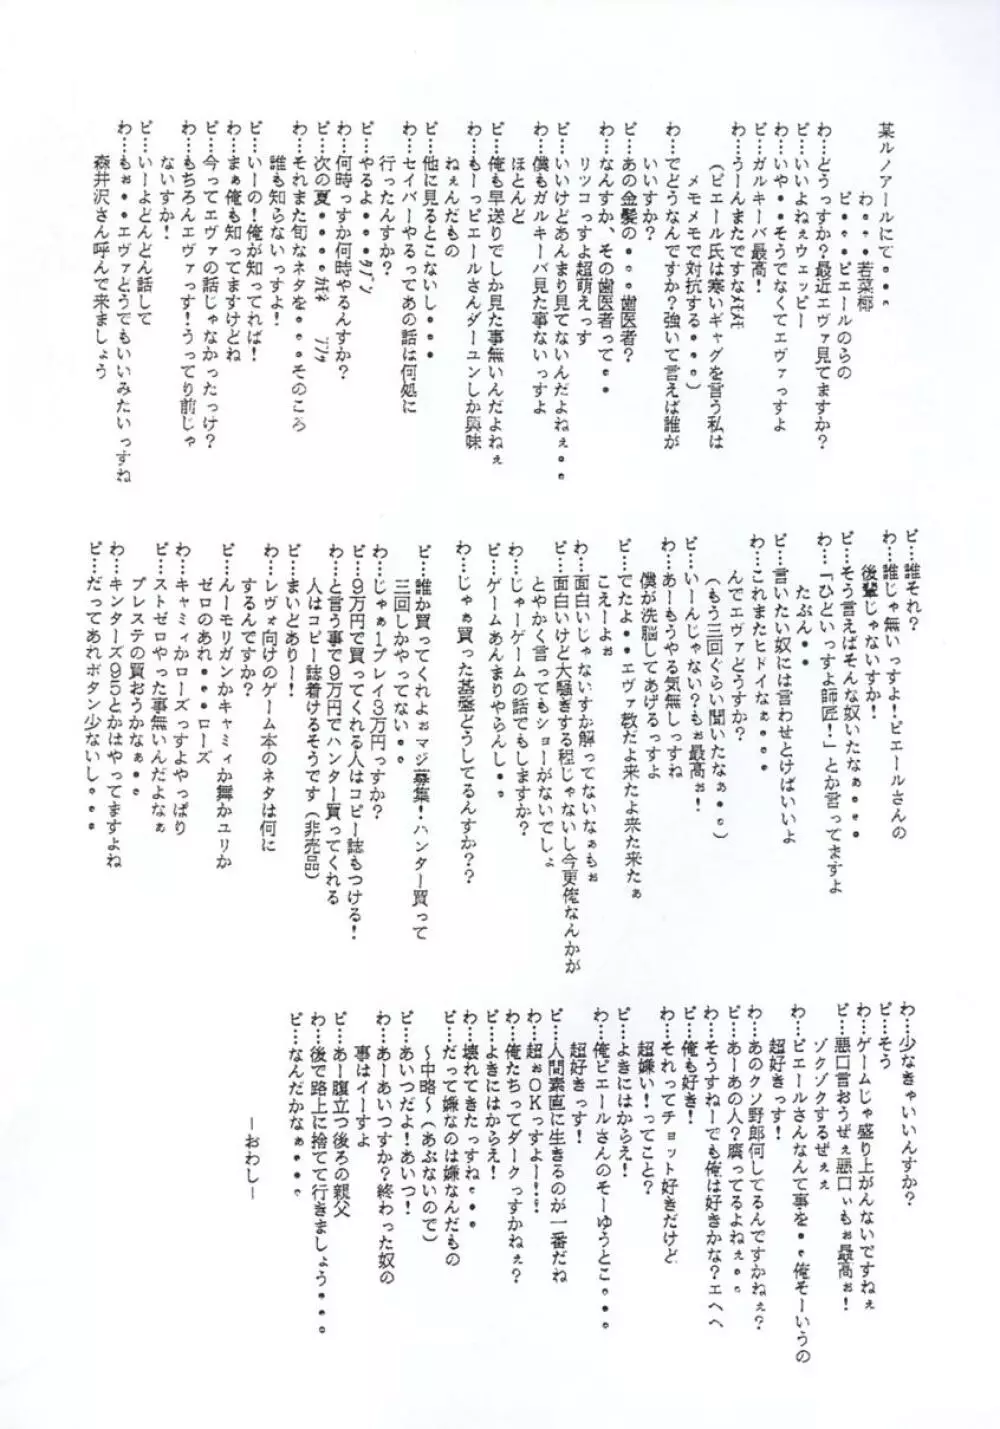 某ルノアールにて・・・
わ・・・若菜椰
ピ・・・ピエールのらの
わ…どうっすか？最近エヴァ見てますか？
ピ…いいよねぇウェッピー
わ…いや・・そうでなくてエヴァっすよ
ピ…ガルキーバ最高！
わ…うーんまたですなﾒﾓﾒﾓ
（ピエール氏は寒いギャグを言う私は
メモメモで対抗する・・・）
わ…でどうなんですか？強いて言えば誰が
いいすか？
ピ…あの金髪の・・・歯医者？
わ…なんすか、その歯医者って・・
リツコっすよ超萌えっす
ピ…いいけどあんまり見てないんだよねぇ・・
わ…僕もガルキーバ見た事ないっすよ
ほとんど
ピ…俺も早送りでしか見た事無いんだよねぇ
わ…もーっピエールさんダーユンしか興味
ねぇんだもの
ピ…他に見るとこないし・・・
わ…セイバーやるってあの話は何処に
行ったんすか？
ピ…やるよ・・・ﾀﾌﾞﾝ
わ…何時っすか何時やるんすか？
ピ…次の夏・・・・
わ…それまた旬なネタを・・・そのころ
誰も知らないっすよ！
ピ…いーの！俺が知ってれば！
わ…まぁ俺も知ってますけどね
ピ…今ってエヴァの話じゃなかったっけ？
わ…もちろんエヴァっす！うってり前じゃ
ないすか！
ピ…いーよどんどん話して
わ…もぉ・・エヴァどうでもいいみたいっすね
森井沢さん呼んで来ましょう
ピ…誰それ？
わ…誰じゃ無いっすよ！ピエールさんの
後輩じゃないすか！
ピ…そう言えばそんな奴いたなぁ・・・
わ…「ひどいっすよ師匠！」とか言ってますよ
たぶん・
ピ…言いたい奴には言わせとけばいいよ
わ…これまたヒドイなぁ・・・
んでエヴァどうすか？
（もう三回ぐらい聞いたなぁ・・）
ピ…いーんじゃない？もぉ最高ぉ！
わ…あーもうやる気無しっすね
僕が洗脳してあげるっすよ
ピ…でたよ・・エヴァ教だよ来たよ来た来たぁ
こえーよぉ
わ…面白いじゃないすか解ってないなぁもぉ
ピ…面白いけど大騒ぎする程じゃないし今更俺なんかが
とやかく言ってもショーがないでしょ
わ…じゃーゲームの話でもしますか？
ピ…ゲームあんまりやらんし・・
わ…じゃぁ買った基盤どうしてるんすか？？
ピ…誰か買ってくれよぉマジ募集！ハンター買って
三回しかやってない・・
わ…じゃぁープレイ３万円っすか？
ピ…９万円で買ってくれる人はコピー誌もつける！
わ…と言う事で９万円でハンター買ってくれる
人はコピー誌着けるそうです（非売品）
ピ…まいどありー！
わ…レヴォ向けのゲーム本のネタは何に
するんですか？
ピ…んーモリガンかキャミィか舞かユリか
ゼロのあれ・・・ローズ
わ…キャミィかローズっすよやっぱり
ピ…ストゼロやった事無いんだよなぁ
プレステの買おうかなぁ・・
わ…キンターズ９５とかはやってますよね
ピ…だってあれボタン少ないし・・・
わ…少なきゃいいんすか？
ピ…そう
わ…ゲームじゃ盛り上がんないですねぇ
ピ…悪口言おうぜぇ悪口ぃもぉ最高ぉ！
ゾクゾクするぜぇぇ
わ…ピエールさんなんて事を・・俺そーいうの
超好きっす！
わ…あのクソ野郎何してるんですかねぇ？
ピ…あーあの人？腐ってるよねぇ・・
わ…そうすねーでも俺は好きかな？エヘヘ
ピ…俺も好き！
わ…それってチョット好きだけど
超嫌い！ってこと？
ピ…よきにはからえ！
わ…俺ピエールさんのそーゆうとこ・・・
超好きっす！
ピ…人間素直に生きるのが一番だね
わ…超ぉＯＫっすよー！！
わ…俺たちってダークっすかねぇ？
ピ…よきにはからえ！
わ…壊れてきたっすね・・・
ピ…だって嫌なのは嫌なんだもの
～中略～（あぶないので）
ピ…あいつだよ！あいつ！
わ…あーあいつすか？終わった奴の
事はイーすよ
ピ…あー腹立つ後ろの親父
わ…後で路上に捨てて行きましょう・・・
ピ…なんだかなぁ・・・
―おわし―